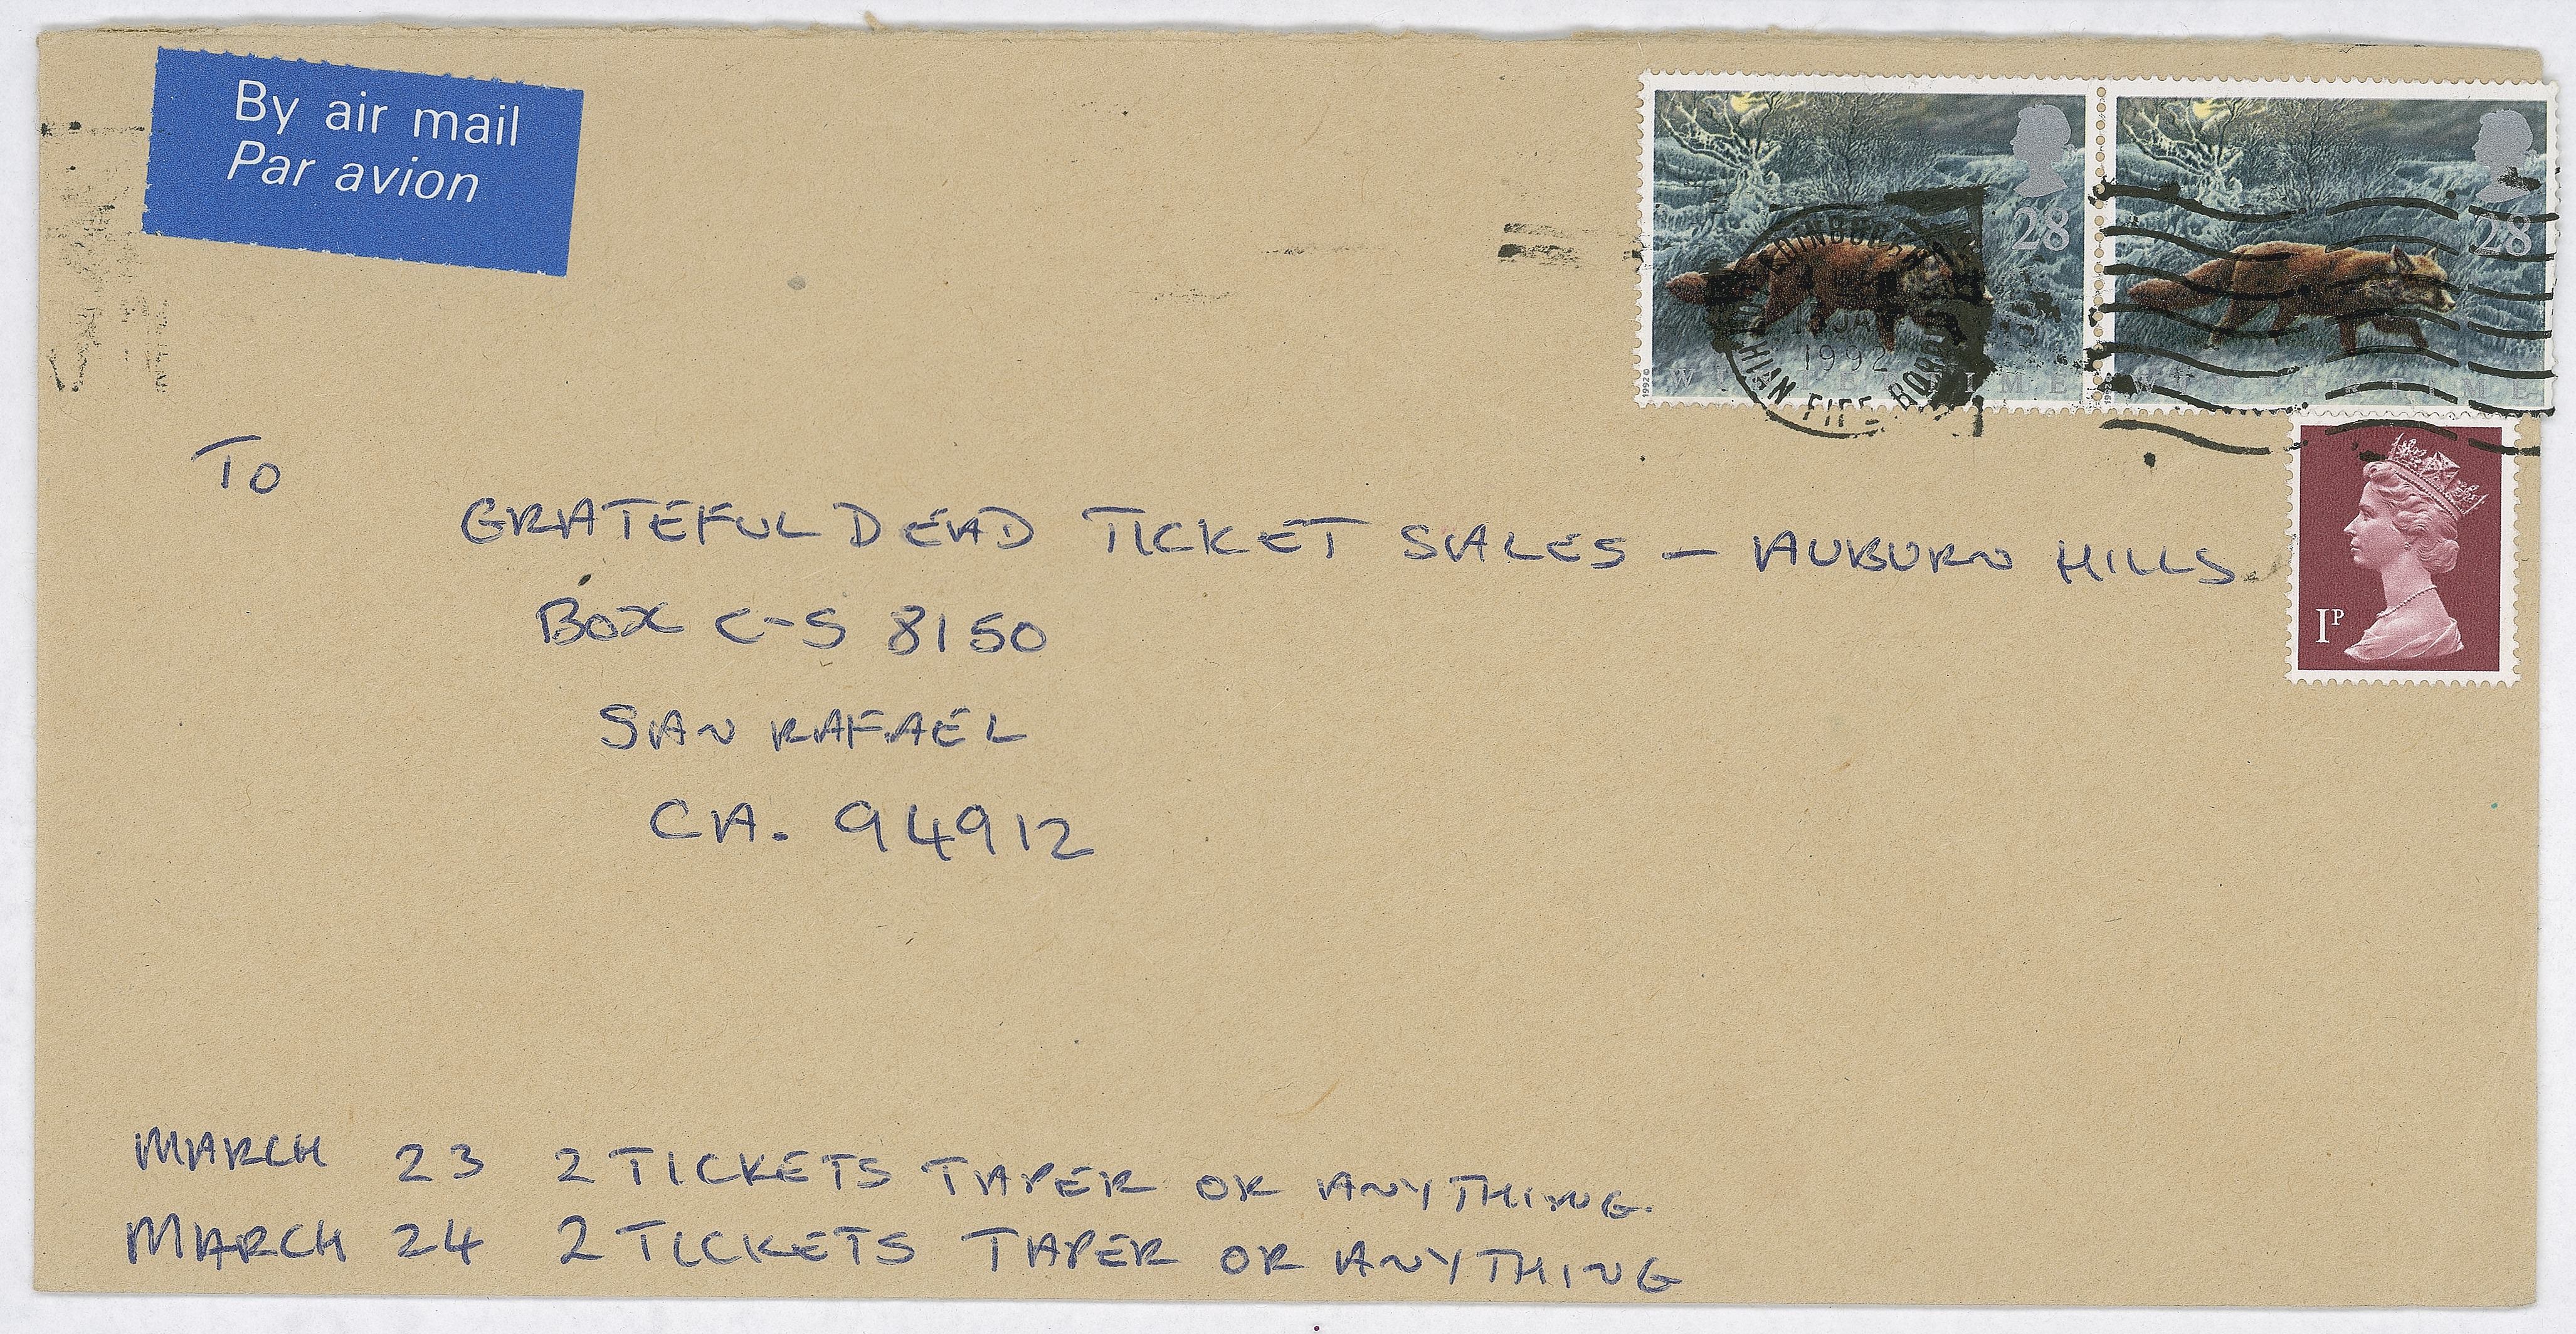 By air mail
Par avion
28
28
EDINBURGH
JA
1992
FIFE
WINTERTIME
WINTERTIME
1992©
1P
TO
GRATEFUL DEAD TICKET SALES - AUBURN HILLS
BOX C-S 8150
SAN RAFAEL
CA. 94912
MARCH 23 2 TICKETS TAPER OR ANYTHING.
MARCH 24 2 TICKETS TAPER OR ANYTHING